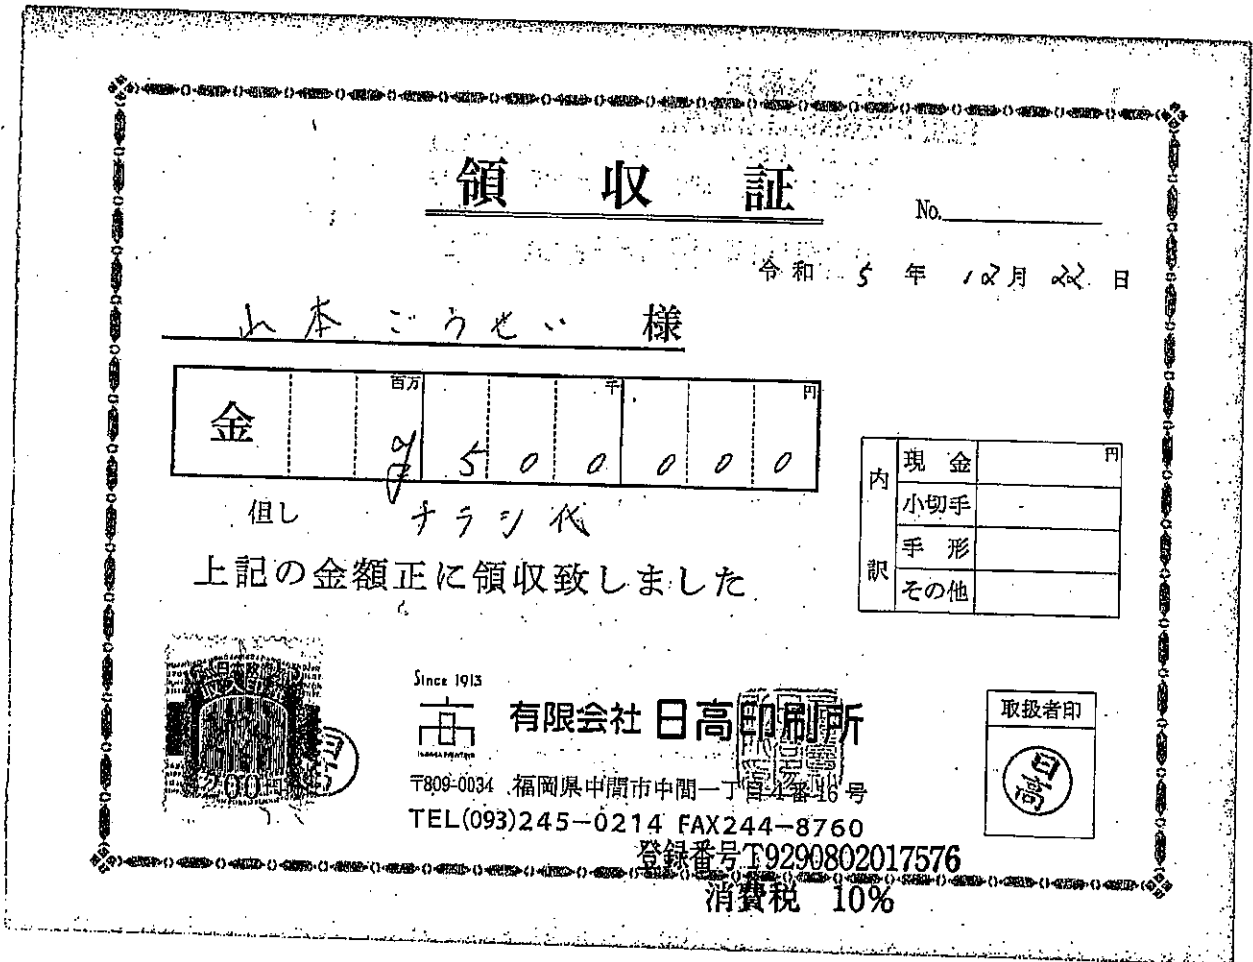 領収証
No.
令和 5 年 12月 22 日
山本ごうせい 様
金 百万 千 円
¥ 5 0 0 0 0 0
但し チラシ代
上記の金額正に領収致しました
内訳
現金 円
小切手
手形
その他
日本政府
収入印紙
200円
Since 1913
有限会社 日高印刷所
〒809-0034 福岡県中間市中間一丁目4番16号
TEL(093)245-0214 FAX244-8760
登録番号T9290802017576
消費税 10%
取扱者印
日高